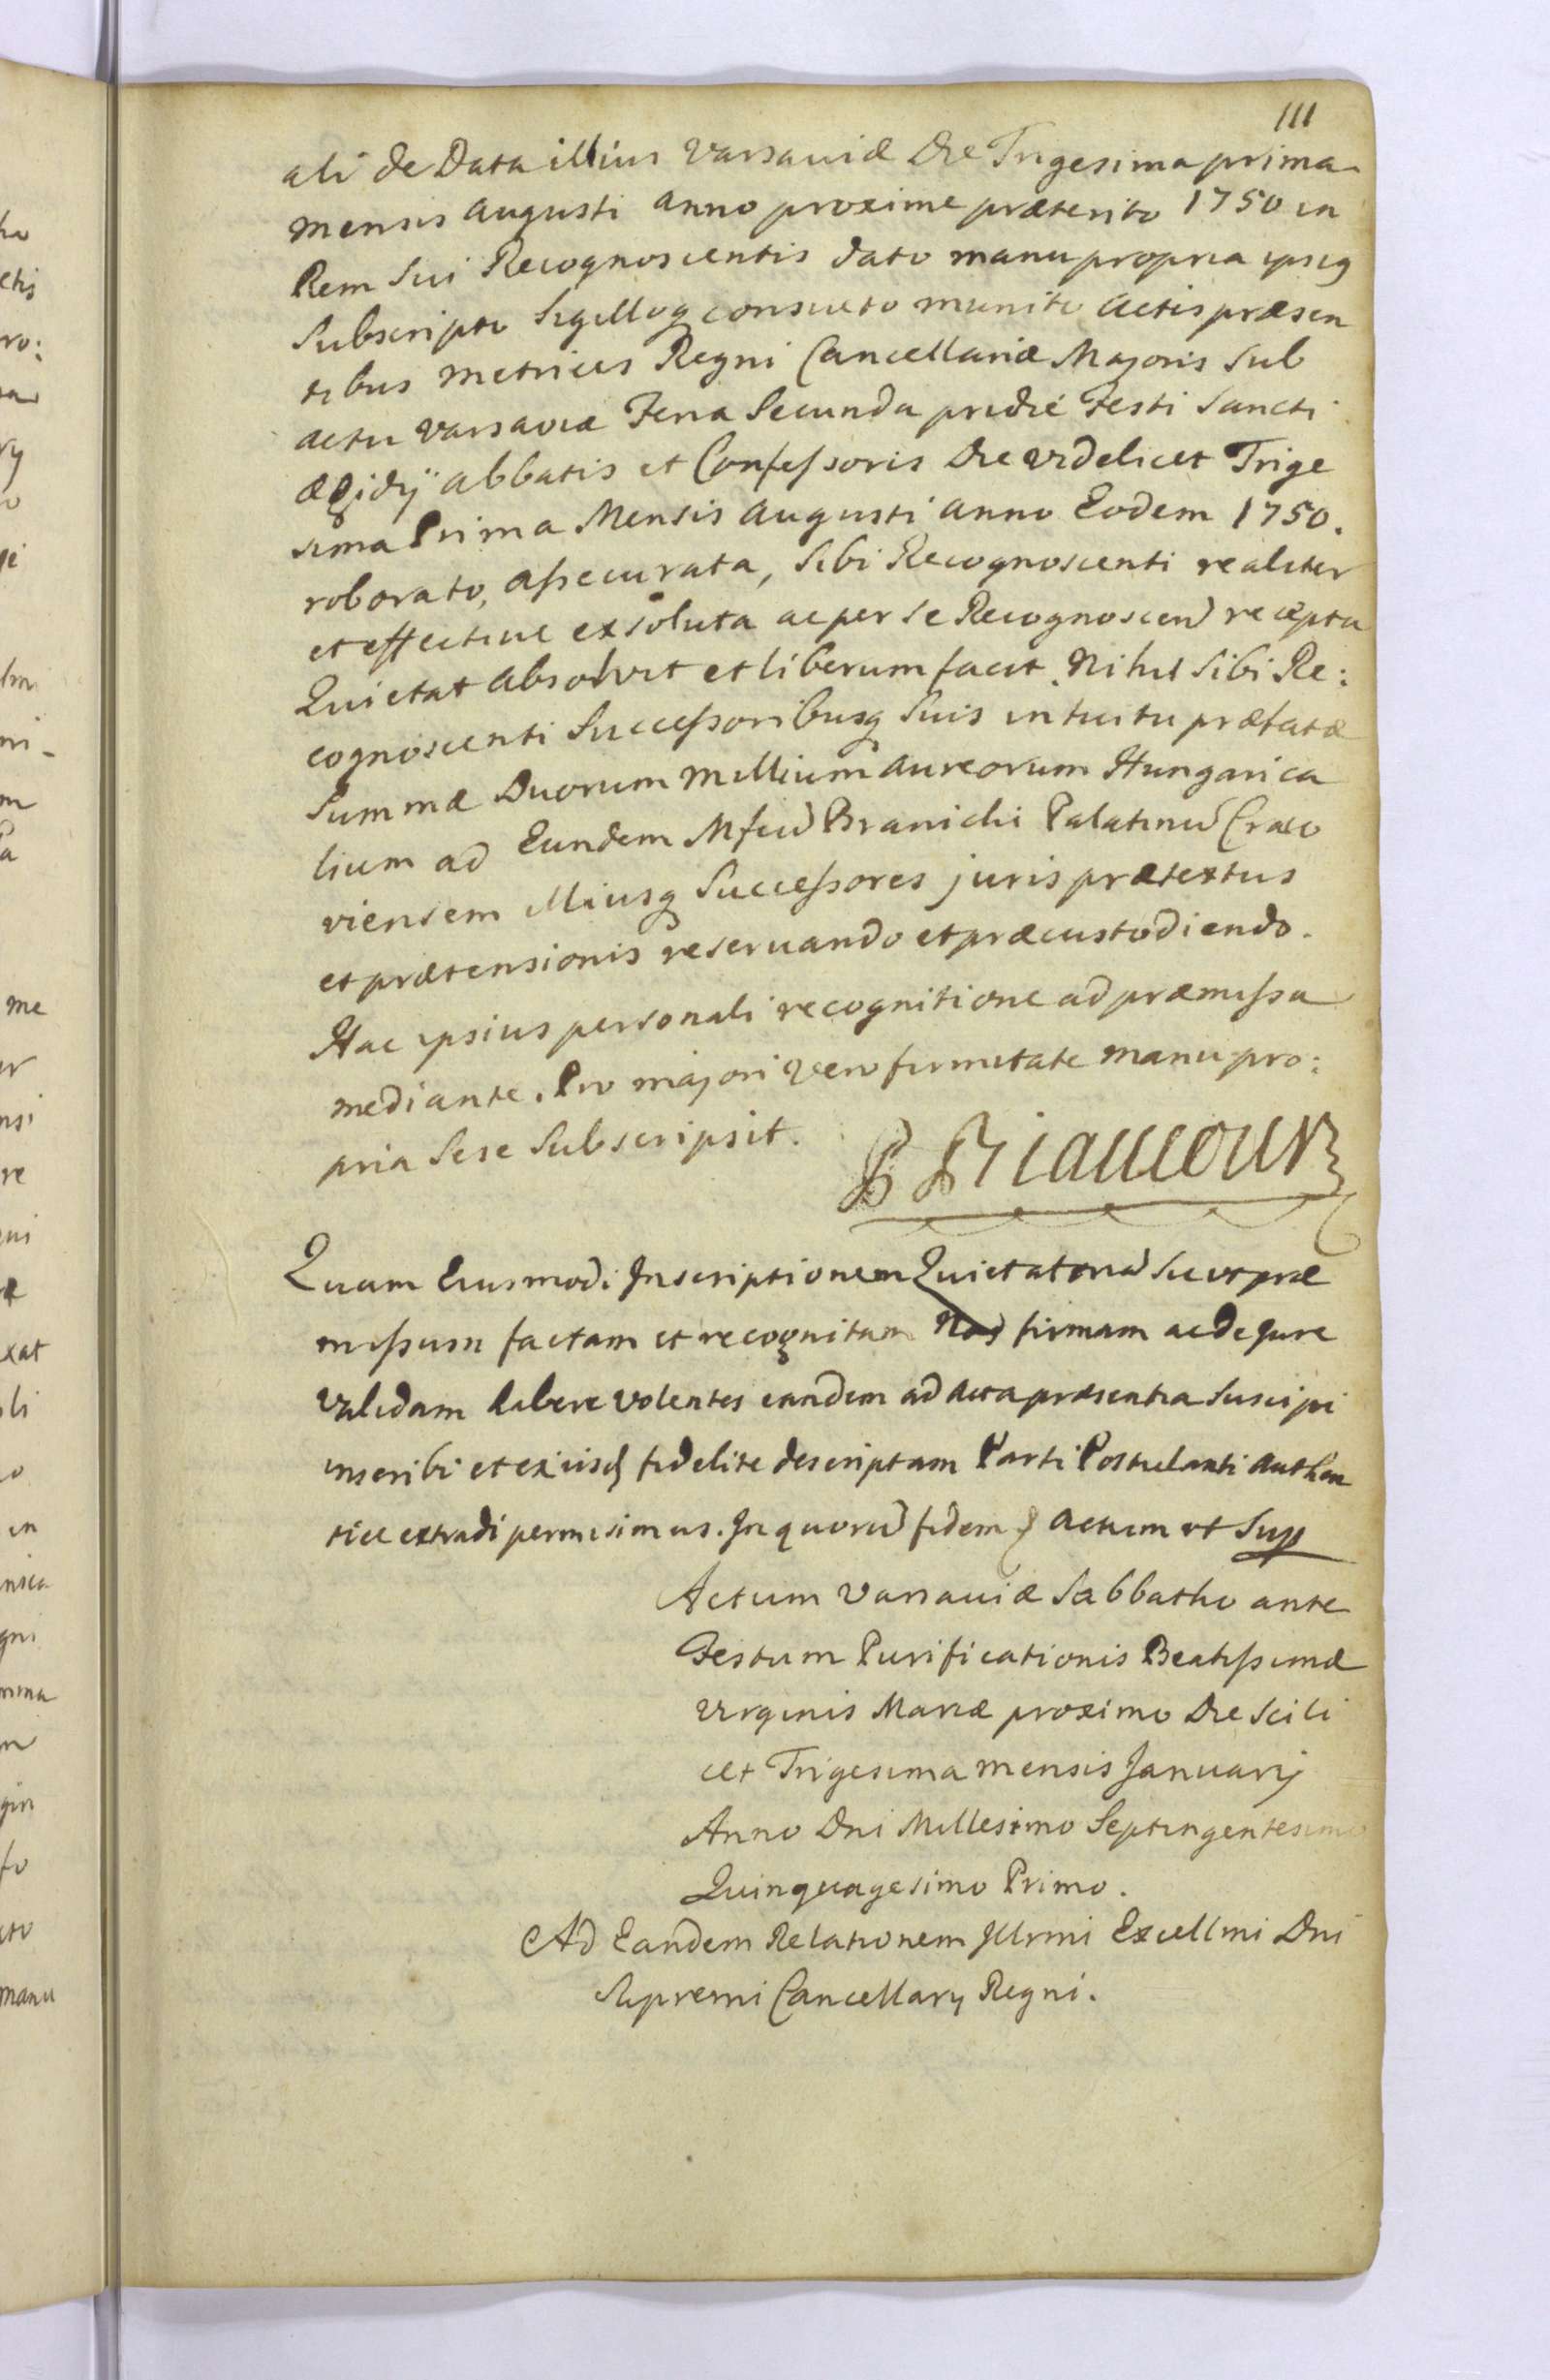 111
ali de Data illius Varsaviæ Die Trigesima prima
mensis Augusti anno proxime præterito 1750 in
Rem Sui Recognoscentis dato manu propria ipsiq
Subscripto Sigilloq consueto munito Actis præsen
tibus metrices Regni Cancellariæ Majoris Sub
actu Varsaviæ Feria Secunda pridie Festi Sancti
Ægidÿ Abbatis et Confessoris Die videlicet Trige
sima Prima Mensis Augusti anno Eodem 1750.
roborato, assecurata, Sibi Recognoscenti realiter
et effective exsoluta ac per Se Recognoscen recepta
Quietat absolvit et liberum facit. Nihil Sibi Re:
cognoscenti Successoribusq Suis intuitu præfatæ
Summæ Duorum Millium aureorum Hungarica
lium ad Eundem Mfcu Branicki Palatinu Craco
viensem illiusq Successores juris prætextus
et prætensionis reservando et præcustodiendo.
Hac ipsius personali recognitione ad præmissa
mediante. Pro majori vero firmitate manu pro:
pria Sese Subscripsit.
P Riaucour
Quam Eiusmodi Inscriptionem Quietatoria Sic ut præ
missum factam et recognitam Nos firmam ac de Jure
Validam habere volentes eandem ad Acta præsentia Suscipi
inscribi et ex iisd fidelite descriptam Parti Postulanti authen
tice extradi permisimus. In quoru fidem Actum ut Sup
Actum Varsaviæ Sabbatho ante
Festum Purificationis Beatissimæ
Virginis Mariæ proximo Die Scili
cet Trigesima mensis Januarij
Anno Dni Millesimo Septingentesimo
Quinquagesimo Primo.
Ad Eandem Relationem Jllrmi Excellmi Dni
Supremi Cancellarij Regni.